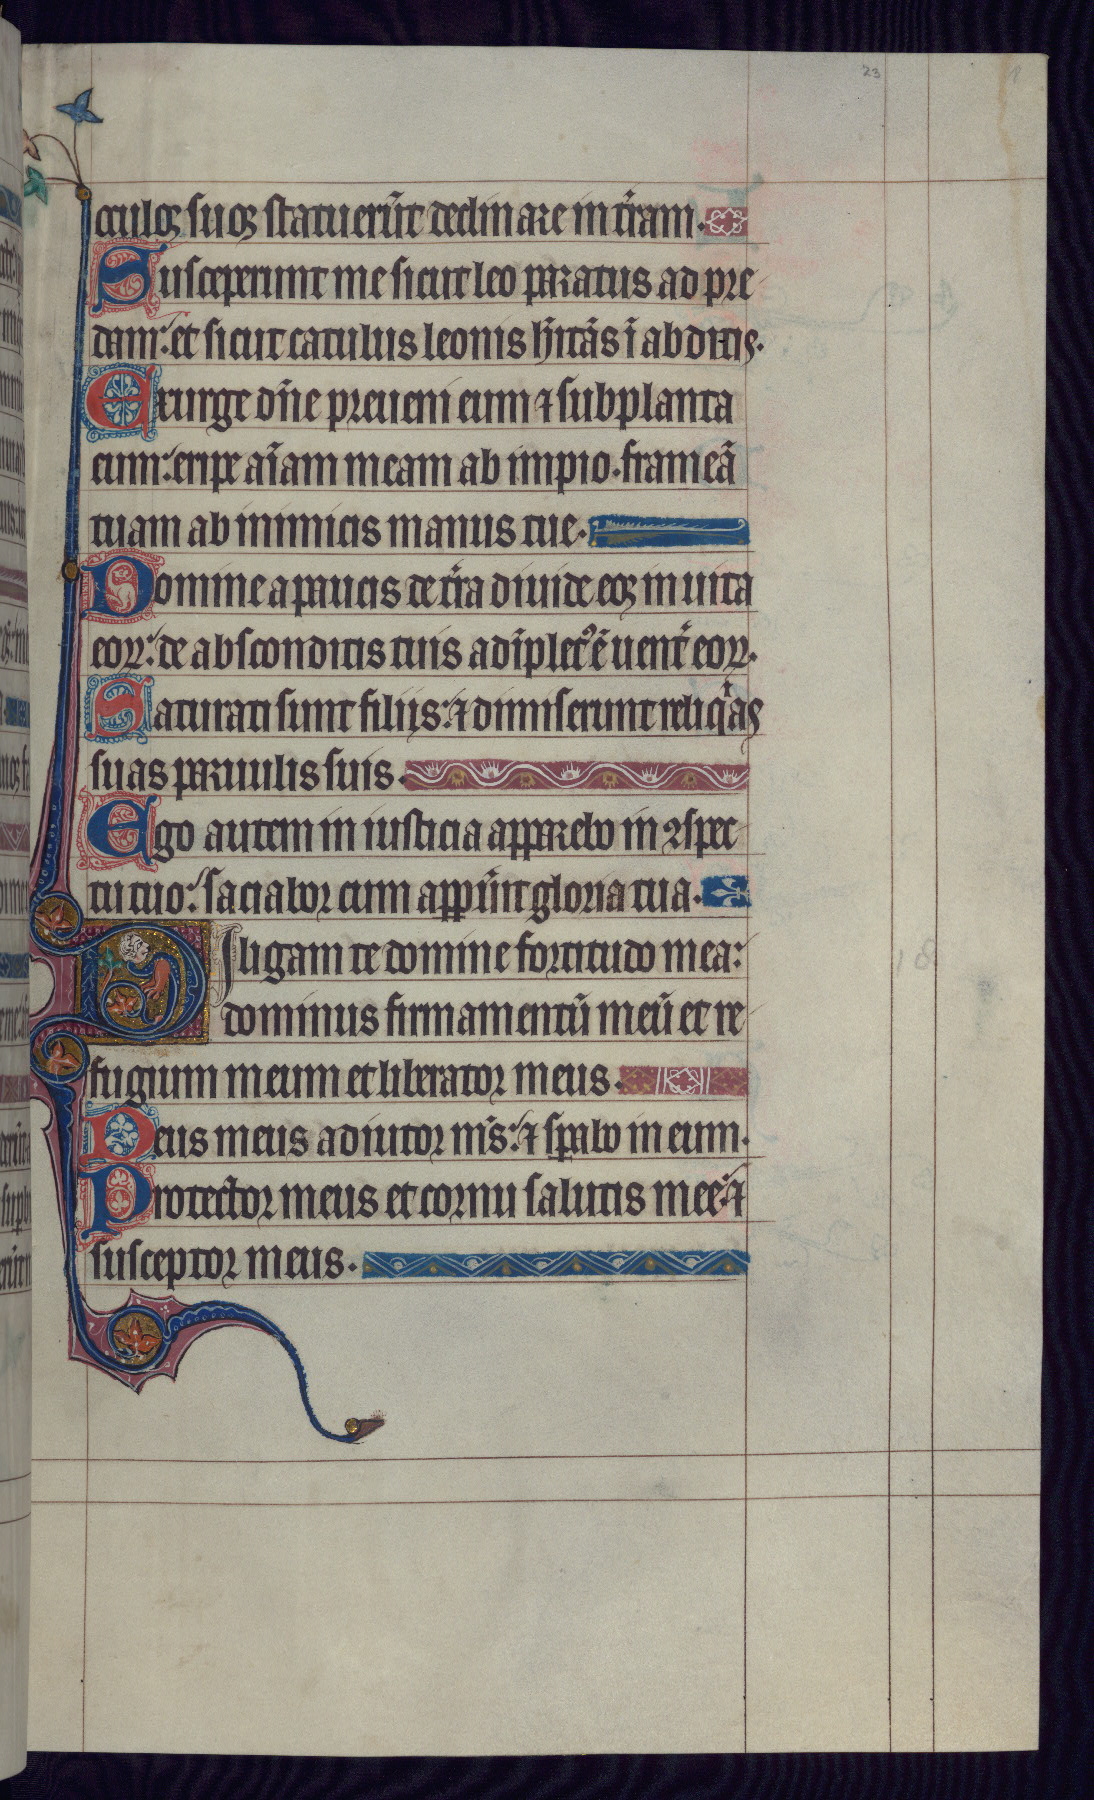 23
oculoꝫ suoꝫ statuerūt declinare in t̄ram.
Susceperunt me sicut leo paratus ad pre
dam: et sicut catulus leonis h̄itās ī abditis.
Exurge dn̄e preueni eum ⁊ subplanta
eum: eripe aīam meam ab impio. frameā
tuam ab inimicis manus tue.
Domine a paucis de t̄ra diuide eoꝫ in uita
eoꝝ: de absconditis tuis adīplet᷒ ē uent̄ eoꝝ.
Saturati sunt filijs: ⁊ dimiserunt reliq̄as
suas paruulis suis.
Ego autem in iusticia apparebo in ꝯspec
tu tuo: saciabor cum appūit gloria tua.
Diligam te domine fortitudo mea:
dominus firmamentū meū et re
fugium meum et liberator meus.
Deus meus adiutor m̄s: ⁊ sp̄abo in eum.
Protector meus et cornu salutis mee: ⁊
susceptor meus.